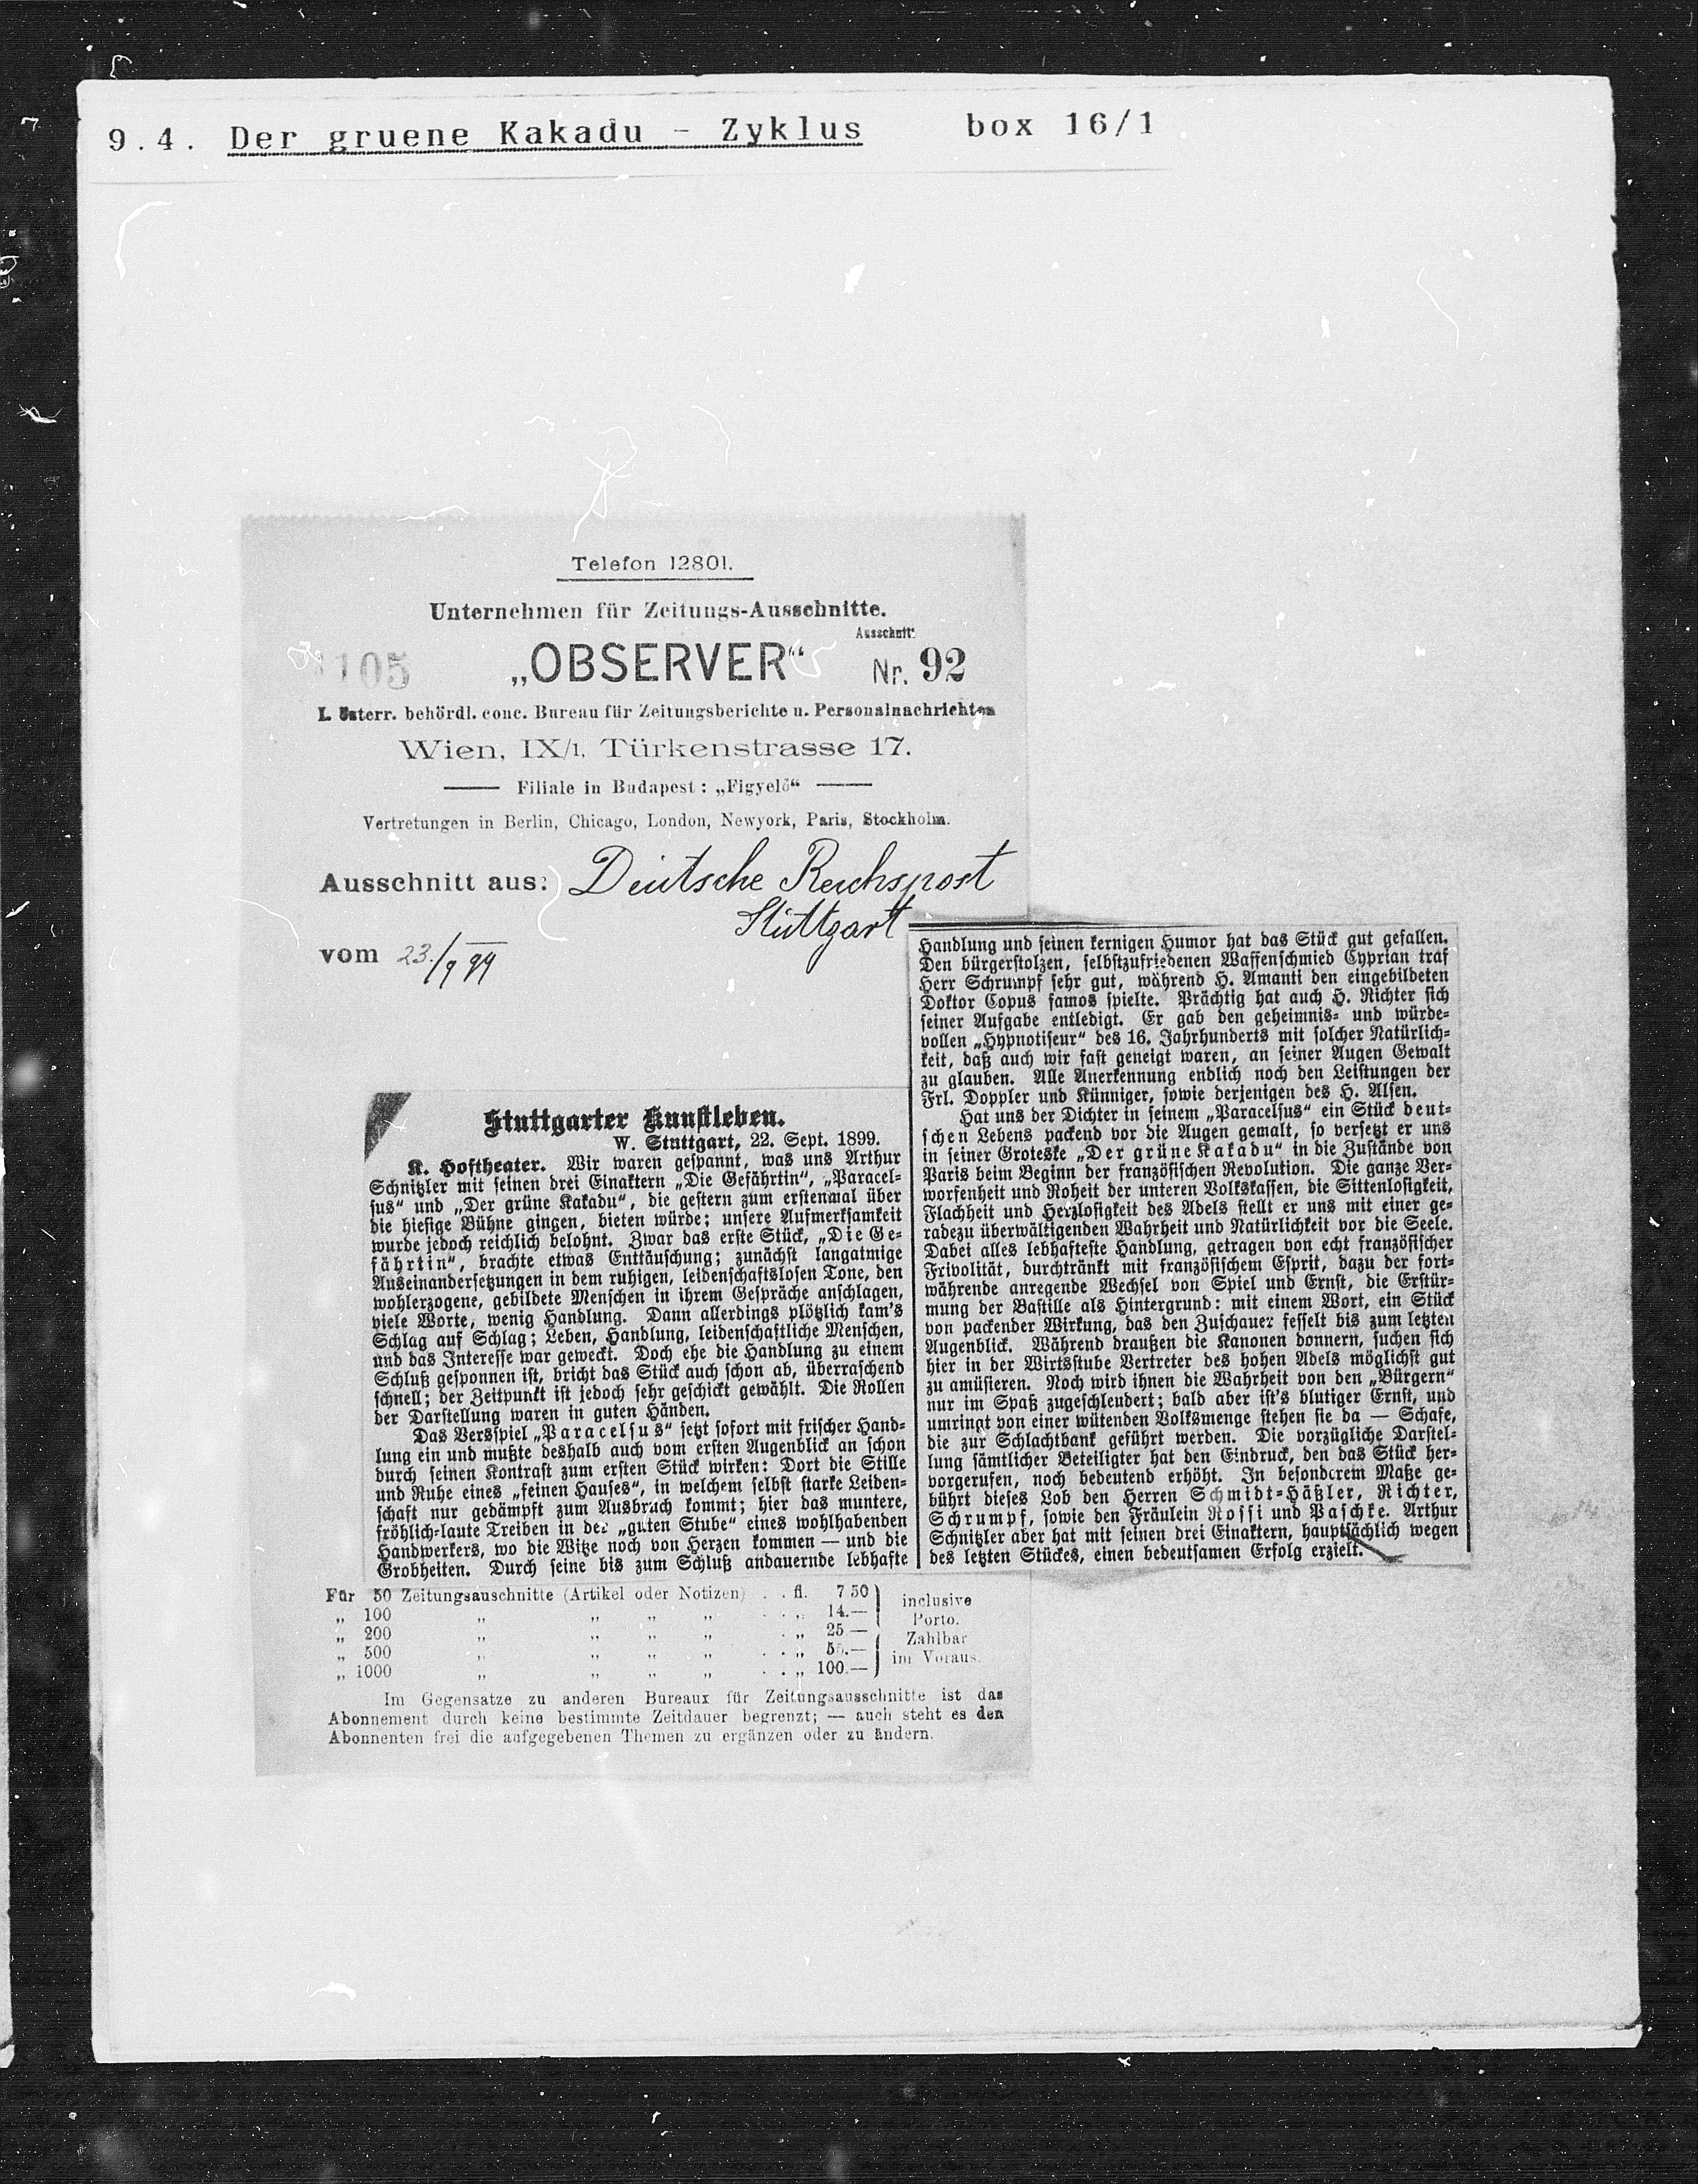 9.4. Der gruene Kakadu - Zyklus box 16/1
Telefon 12801.
Unternehmen für Zeitungs-Ausschnitte.
Ausschnitt
105 „OBSERVER“ Nr. 92
I. österr. behördl. conc. Bureau für Zeitungsberichte u. Personalnachrichten
Wien, IX/1, Türkenstrasse 17.
Filiale in Budapest: „Figyelő“
Vertretungen in Berlin, Chicago, London, Newyork, Paris, Stockholm.
Ausschnitt aus: Deutsche Reichspost
Stuttgart
vom 23./9 99
Stuttgarter Kunstleben.
W. Stuttgart, 22. Sept. 1899.
K. Hoftheater. Wir waren gespannt, was uns Arthur
Schnitzler mit seinen drei Einaktern „Die Gefährtin“, „Paracel-
sus“ und „Der grüne Kakadu“, die gestern zum erstenmal über
die hiesige Bühne gingen, bieten würde; unsere Aufmerksamkeit
wurde jedoch reichlich belohnt. Zwar das erste Stück, „Die Ge-
fährtin“, brachte etwas Enttäuschung; zunächst langatmige
Auseinandersetzungen in dem ruhigen, leidenschaftslosen Tone, den
wohlerzogene, gebildete Menschen in ihrem Gespräche anschlagen,
viele Worte, wenig Handlung. Dann allerdings plötzlich kam's
Schlag auf Schlag; Leben, Handlung, leidenschaftliche Menschen,
und das Interesse war geweckt. Doch ehe die Handlung zu einem
Schluß gesponnen ist, bricht das Stück auch schon ab, überraschend
schnell; der Zeitpunkt ist jedoch sehr geschickt gewählt. Die Rollen
der Darstellung waren in guten Händen.
Das Versspiel „Paracelsus“ setzt sofort mit frischer Hand-
lung ein und mußte deshalb auch vom ersten Augenblick an schon
durch seinen Kontrast zum ersten Stück wirken: Dort die Stille
und Ruhe eines „feinen Hauses“, in welchem selbst starke Leiden-
schaft nur gedämpft zum Ausbruch kommt; hier das muntere,
fröhlich-laute Treiben in der „guten Stube“ eines wohlhabenden
Handwerkers, wo die Witze noch von Herzen kommen — und die
Grobheiten. Durch seine bis zum Schluß andauernde lebhafte
Handlung und seinen kernigen Humor hat das Stück gut gefallen.
Den bürgerstolzen, selbstzufriedenen Waffenschmied Cyprian traf
Herr Schrumpf sehr gut, während H. Amanti den eingebildeten
Doktor Copus famos spielte. Prächtig hat auch H. Richter sich
seiner Aufgabe entledigt. Er gab den geheimnis- und würde-
vollen „Hypnotiseur“ des 16. Jahrhunderts mit solcher Natürlich-
keit, daß auch wir fast geneigt waren, an seiner Augen Gewalt
zu glauben. Alle Anerkennung endlich noch den Leistungen der
Frl. Doppler und Künniger, sowie derjenigen des H. Alsen.
Hat uns der Dichter in seinem „Paracelsus“ ein Stück deut-
schen Lebens packend vor die Augen gemalt, so versetzt er uns
in seiner Groteske „Der grüne Kakadu“ in die Zustände von
Paris beim Beginn der französischen Revolution. Die ganze Ver-
worfenheit und Roheit der unteren Volkskassen, die Sittenlosigkeit,
Flachheit und Herzlosigkeit des Adels stellt er uns mit einer ge-
radezu überwältigenden Wahrheit und Natürlichkeit vor die Seele.
Dabei alles lebhafteste Handlung, getragen von echt französischer
Frivolität, durchtränkt mit französischem Esprit, dazu der fort-
währende anregende Wechsel von Spiel und Ernst, die Erstür-
mung der Bastille als Hintergrund: mit einem Wort, ein Stück
von packender Wirkung, das den Zuschauer fesselt bis zum letzten
Augenblick. Während draußen die Kanonen donnern, suchen sich
hier in der Wirtsstube Vertreter des hohen Adels möglichst gut
zu amüsieren. Noch wird ihnen die Wahrheit von den „Bürgern“
nur im Spaß zugeschleudert; bald aber ist's blutiger Ernst, und
umringt von einer wütenden Volksmenge stehen sie da — Schafe,
die zur Schlachtbank geführt werden. Die vorzügliche Darstel-
lung sämtlicher Beteiligter hat den Eindruck, den das Stück her-
vorgerufen, noch bedeutend erhöht. In besonderem Maße ge-
bührt dieses Lob den Herren Schmidt-Häßler, Richter,
Schrumpf, sowie den Fräulein Rossi und Paschke. Arthur
Schnitzler aber hat mit seinen drei Einaktern, hauptsächlich wegen
des letzten Stückes, einen bedeutsamen Erfolg erzielt.
Für 50 Zeitungsausschnitte (Artikel oder Notizen) . . fl. 7.50 inclusive
„ 100 „ „ „ „ . . „ 14.— Porto.
„ 200 „ „ „ „ . . „ 25.— Zahlbar
„ 500 „ „ „ „ . . „ 55.— im Voraus.
„ 1000 „ „ „ „ . . „ 100.—
Im Gegensatze zu anderen Bureaux für Zeitungsausschnitte ist das
Abonnement durch keine bestimmte Zeitdauer begrenzt; — auch steht es den
Abonnenten frei die aufgegebenen Themen zu ergänzen oder zu ändern.